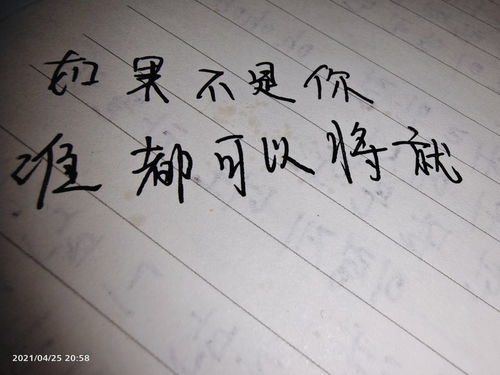 如果不是你
谁都可以将就
2021/04/25 20:58